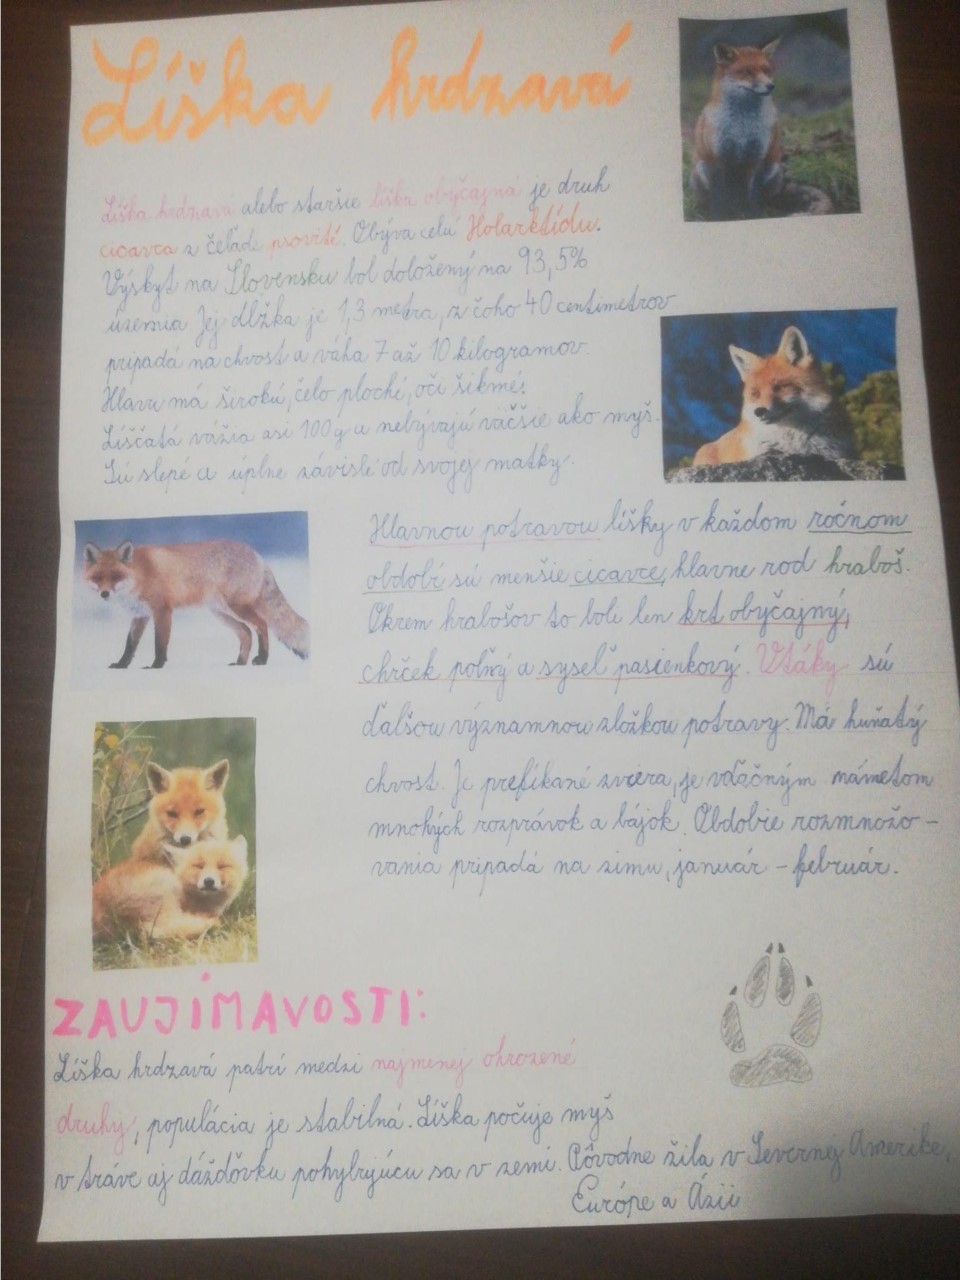 Líška hrdzavá
Líška hrdzavá alebo staršie líška obyčajná je druh
cicavca z čeľade psovité. Obýva celú Holarktídu.
Výskyt na Slovensku bol doložený na 93,5%
územia. Jej dĺžka je 1,3 metra, z čoho 40 centimetrov
pripadá na chvost a váha 7 až 10 kilogramov.
Hlavu má širokú, čelo ploché, oči šikmé.
Líščatá vážia asi 100g a nebývajú väčšie ako myš.
Sú slepé a úplne závislé od svojej matky.
Hlavnou potravou líšky v každom ročnom
období sú menšie cicavce, hlavne rod hraboš.
Okrem hrabošov to boli len krt obyčajný,
chrček poľný a syseľ pasienkový. Vtáky sú
ďalšou významnou zložkou potravy. Má huňatý
chvost. Je prefíkané zviera, je vďačným námetom
mnohých rozprávok a bájok. Obdobie rozmnožo-
vania pripadá na zimu, január - február.
ZAUJÍMAVOSTI:
Líška hrdzavá patrí medzi najmenej ohrozené
druhy, populácia je stabilná. Líška počuje myš
v tráve aj dážďovku pohybujúcu sa v zemi. Pôvodne žila v Severnej Amerike,
Európe a Ázii